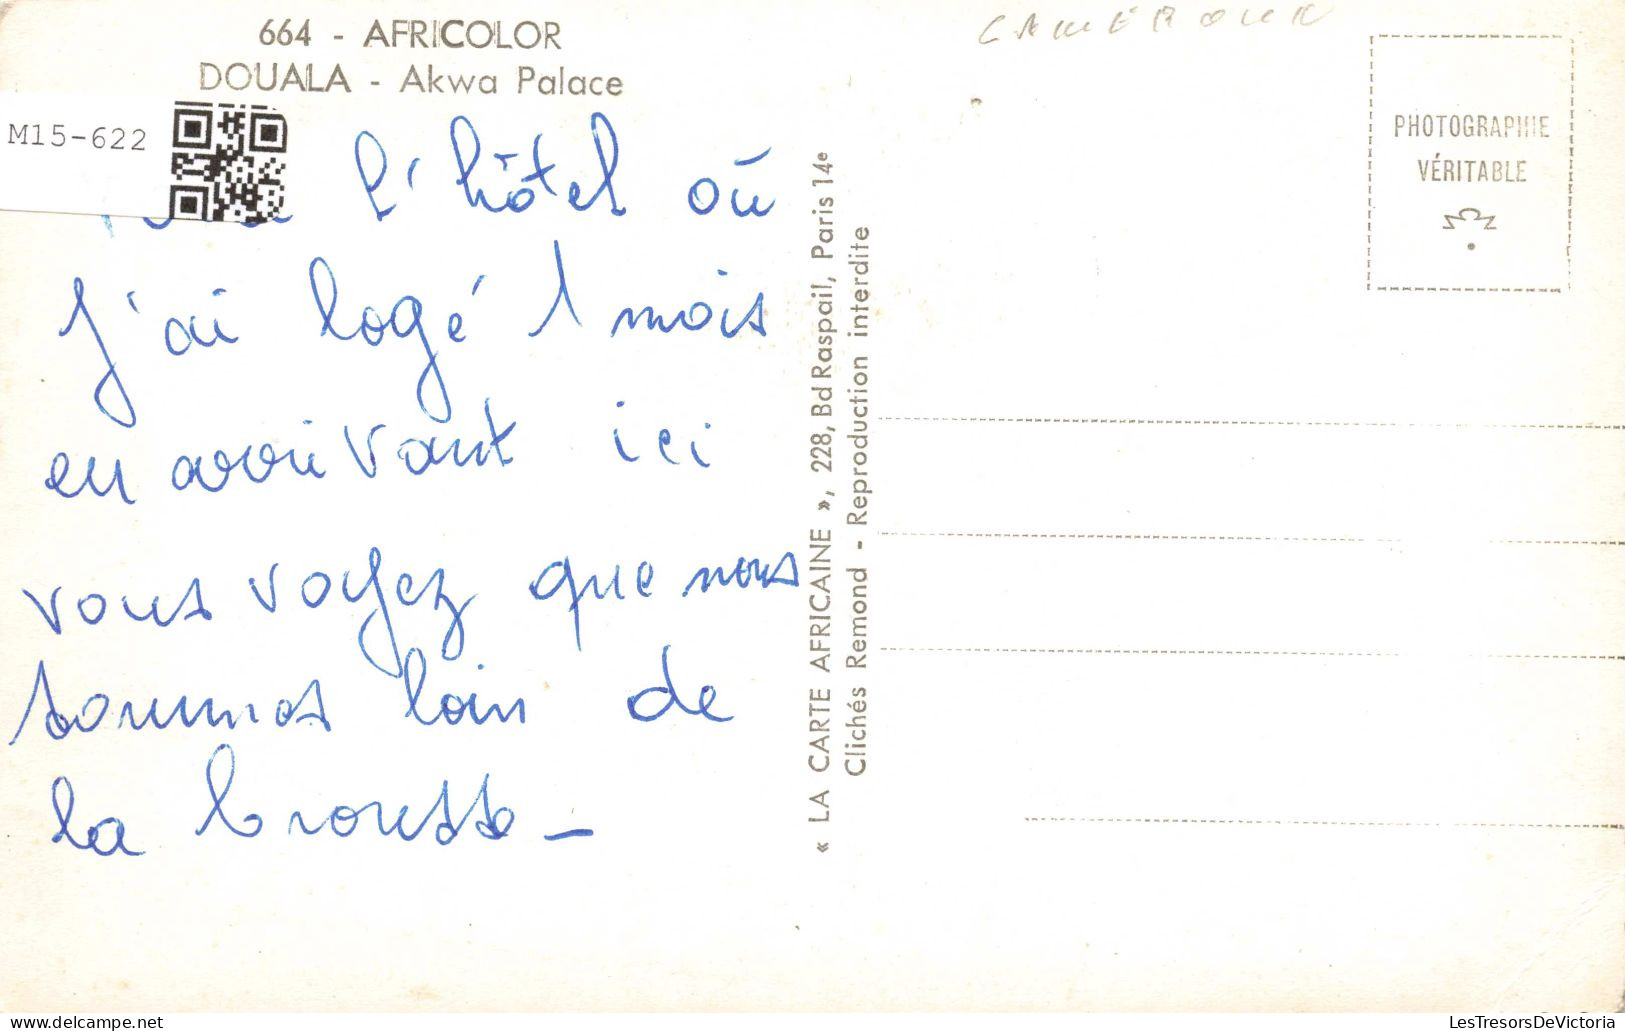 664 - AFRICOLOR
DOUALA - Akwa Palace
M15-622
l'hôtel où
j'ai logé 1 mois
en arrivant ici
vous voyez que nous
sommes loin de
la brousse -
« LA CARTE AFRICAINE », 228, Bd Raspail, Paris 14e
Clichés Remond - Reproduction interdite
CAMEROUN
PHOTOGRAPHIE
VÉRITABLE
LesTresorsDeVictoria
www.delcampe.net